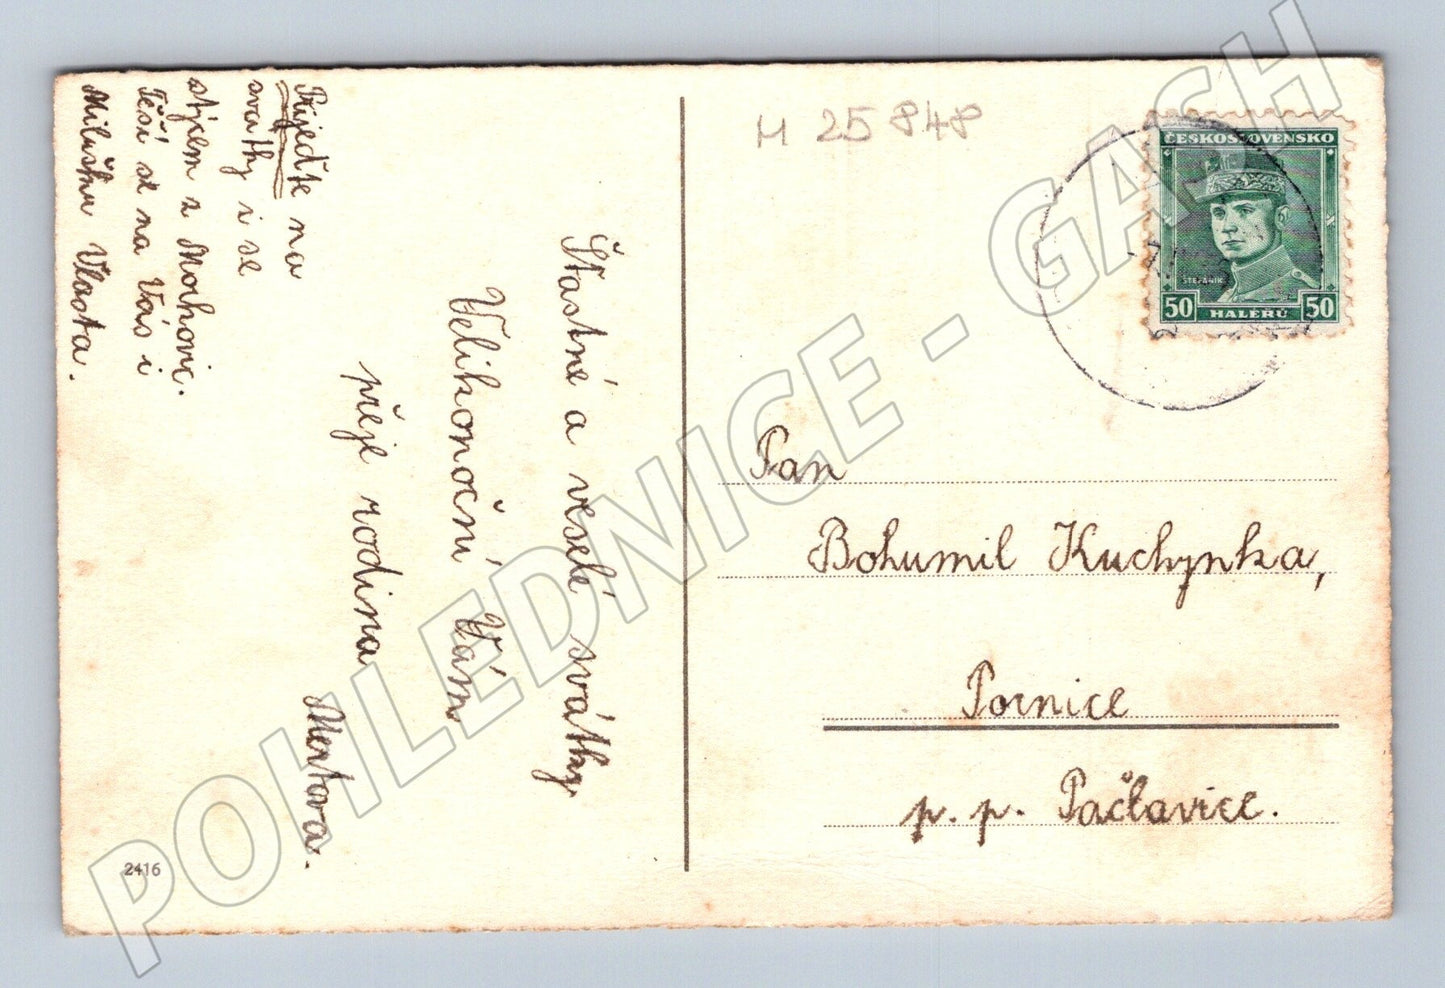 Přijeďte na
svátky i se
stýcem z Morkovic.
Těší se na Vás i
Miluška Vlasta.
Šťastné a veselé svátky
Velikonoční Vám
přeje rodina
M 25848
ČESKOSLOVENSKO
ŠTEFÁNIK
50 HALÉŘŮ 50
Pan
Bohumil Kuchynka,
Pornice
p. p. Pačlavice.
2416
POHLEDNICE - GASH